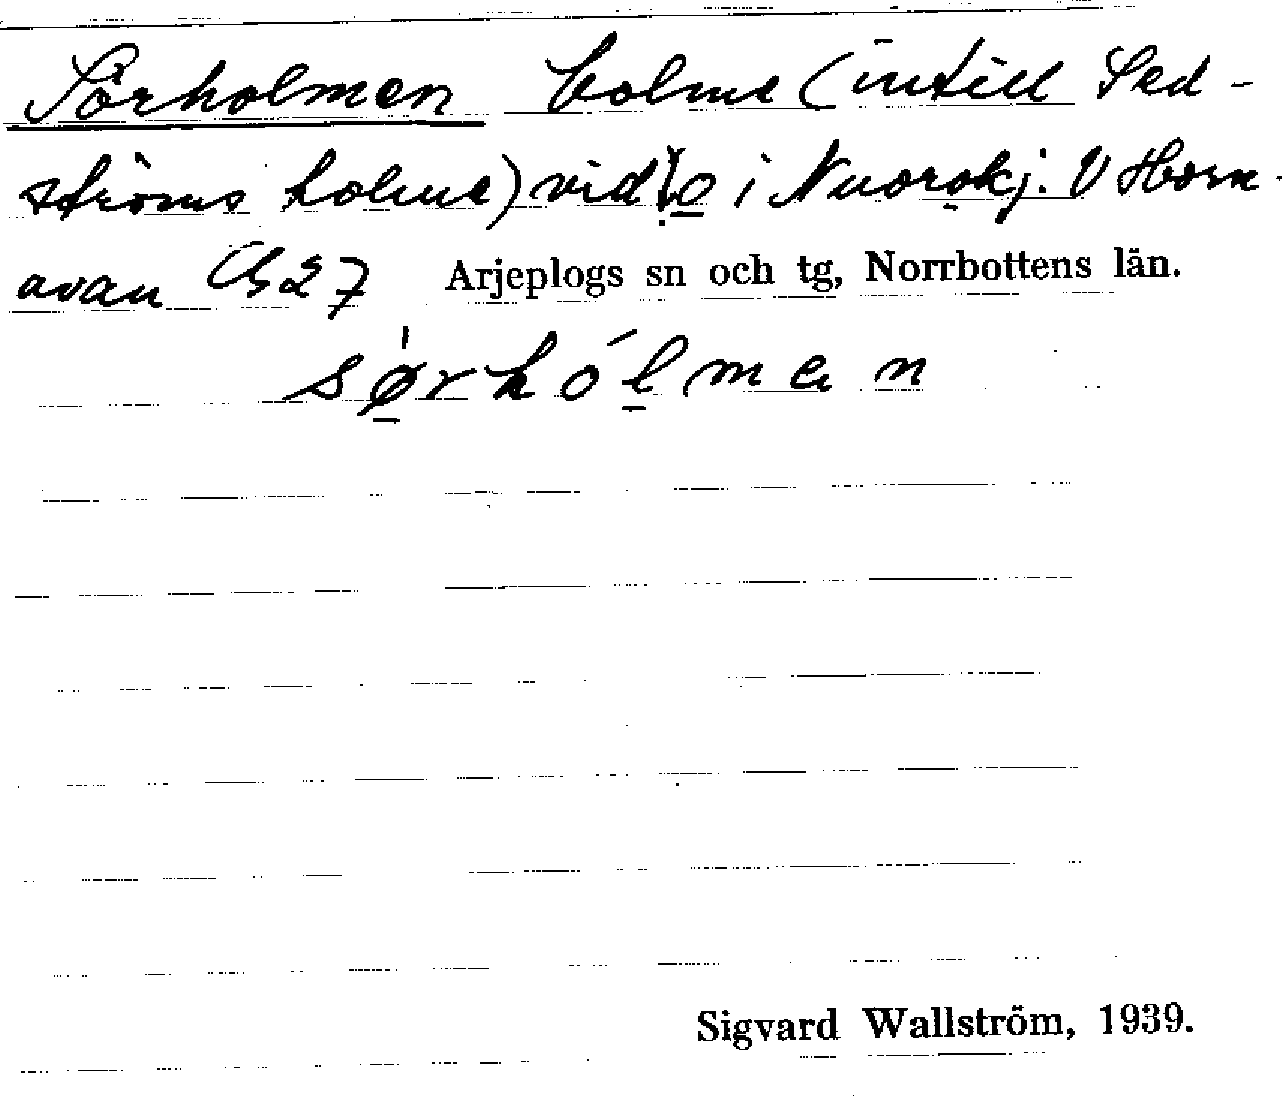 Sörholmen holme (intill Sed-
ströms holme) vid o i Nuorokj. V Horn-
avan 27 Arjeplogs sn och tg, Norrbottens län.
sø̱rhólmen
Sigvard Wallström, 1939.